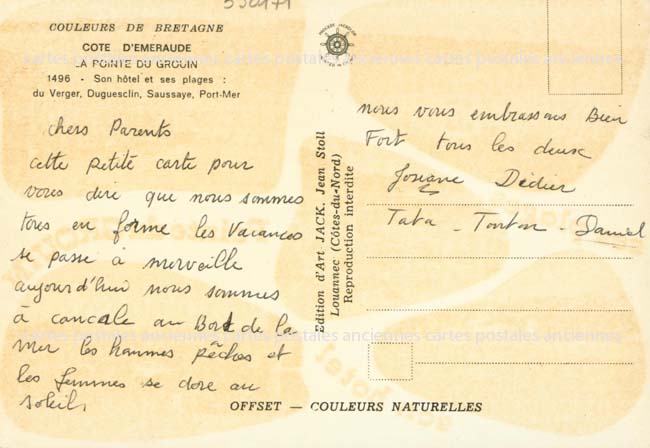 COULEURS DE BRETAGNE
COTE D'EMERAUDE
LA POINTE DU GROUIN
1496 - Son hôtel et ses plages :
du Verger, Duguesclin, Saussaye, Port-Mer
chers Parents
cette petite carte pour
vous dire que nous sommes
tous en forme les Vacances
se passe à merveille
aujourd'hui nous sommes
à cancale au Bord de la
mer les hommes pêches et
les femmes se dore au
soleil,
Edition d'Art JACK, Jean Stoll
Louannec (Côtes-du-Nord)
Reproduction interdite
nous vous embrassons Bien
Fort tous les deux
Josiane Dédier
Tata - Tonton - Daniel
OFFSET — COULEURS NATURELLES
cartes postales anciennes cartes postales anciennes cartes postales anciennes
cartes postales anciennes cartes postales anciennes cartes postales anciennes